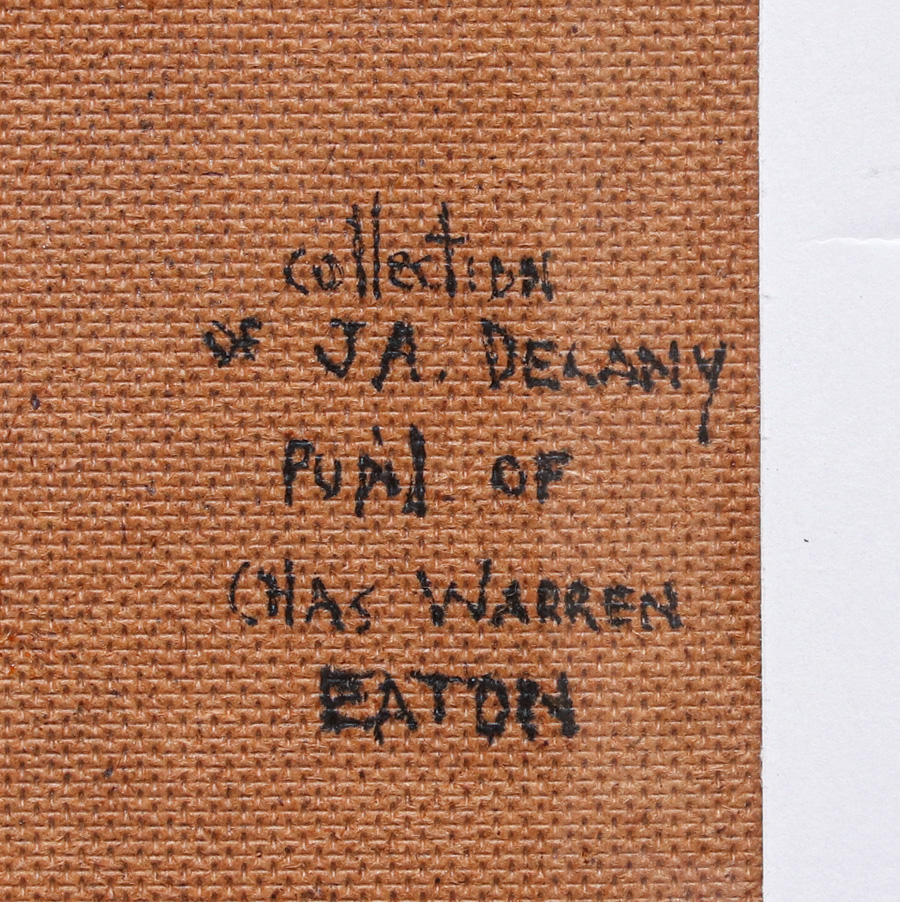 collection
OF JA. DELANY
PUPil OF
CHAS WARREN
EATON